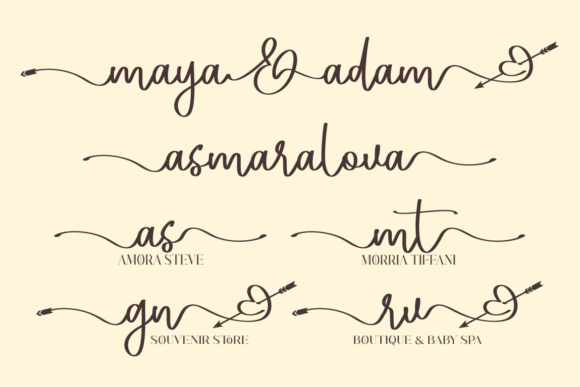 maya & adam
asmaralova
as
AMORA STEVE
mt
MORRIA TIFFANI
gn
SOUVENIR STORE
rv
BOUTIQUE & BABY SPA